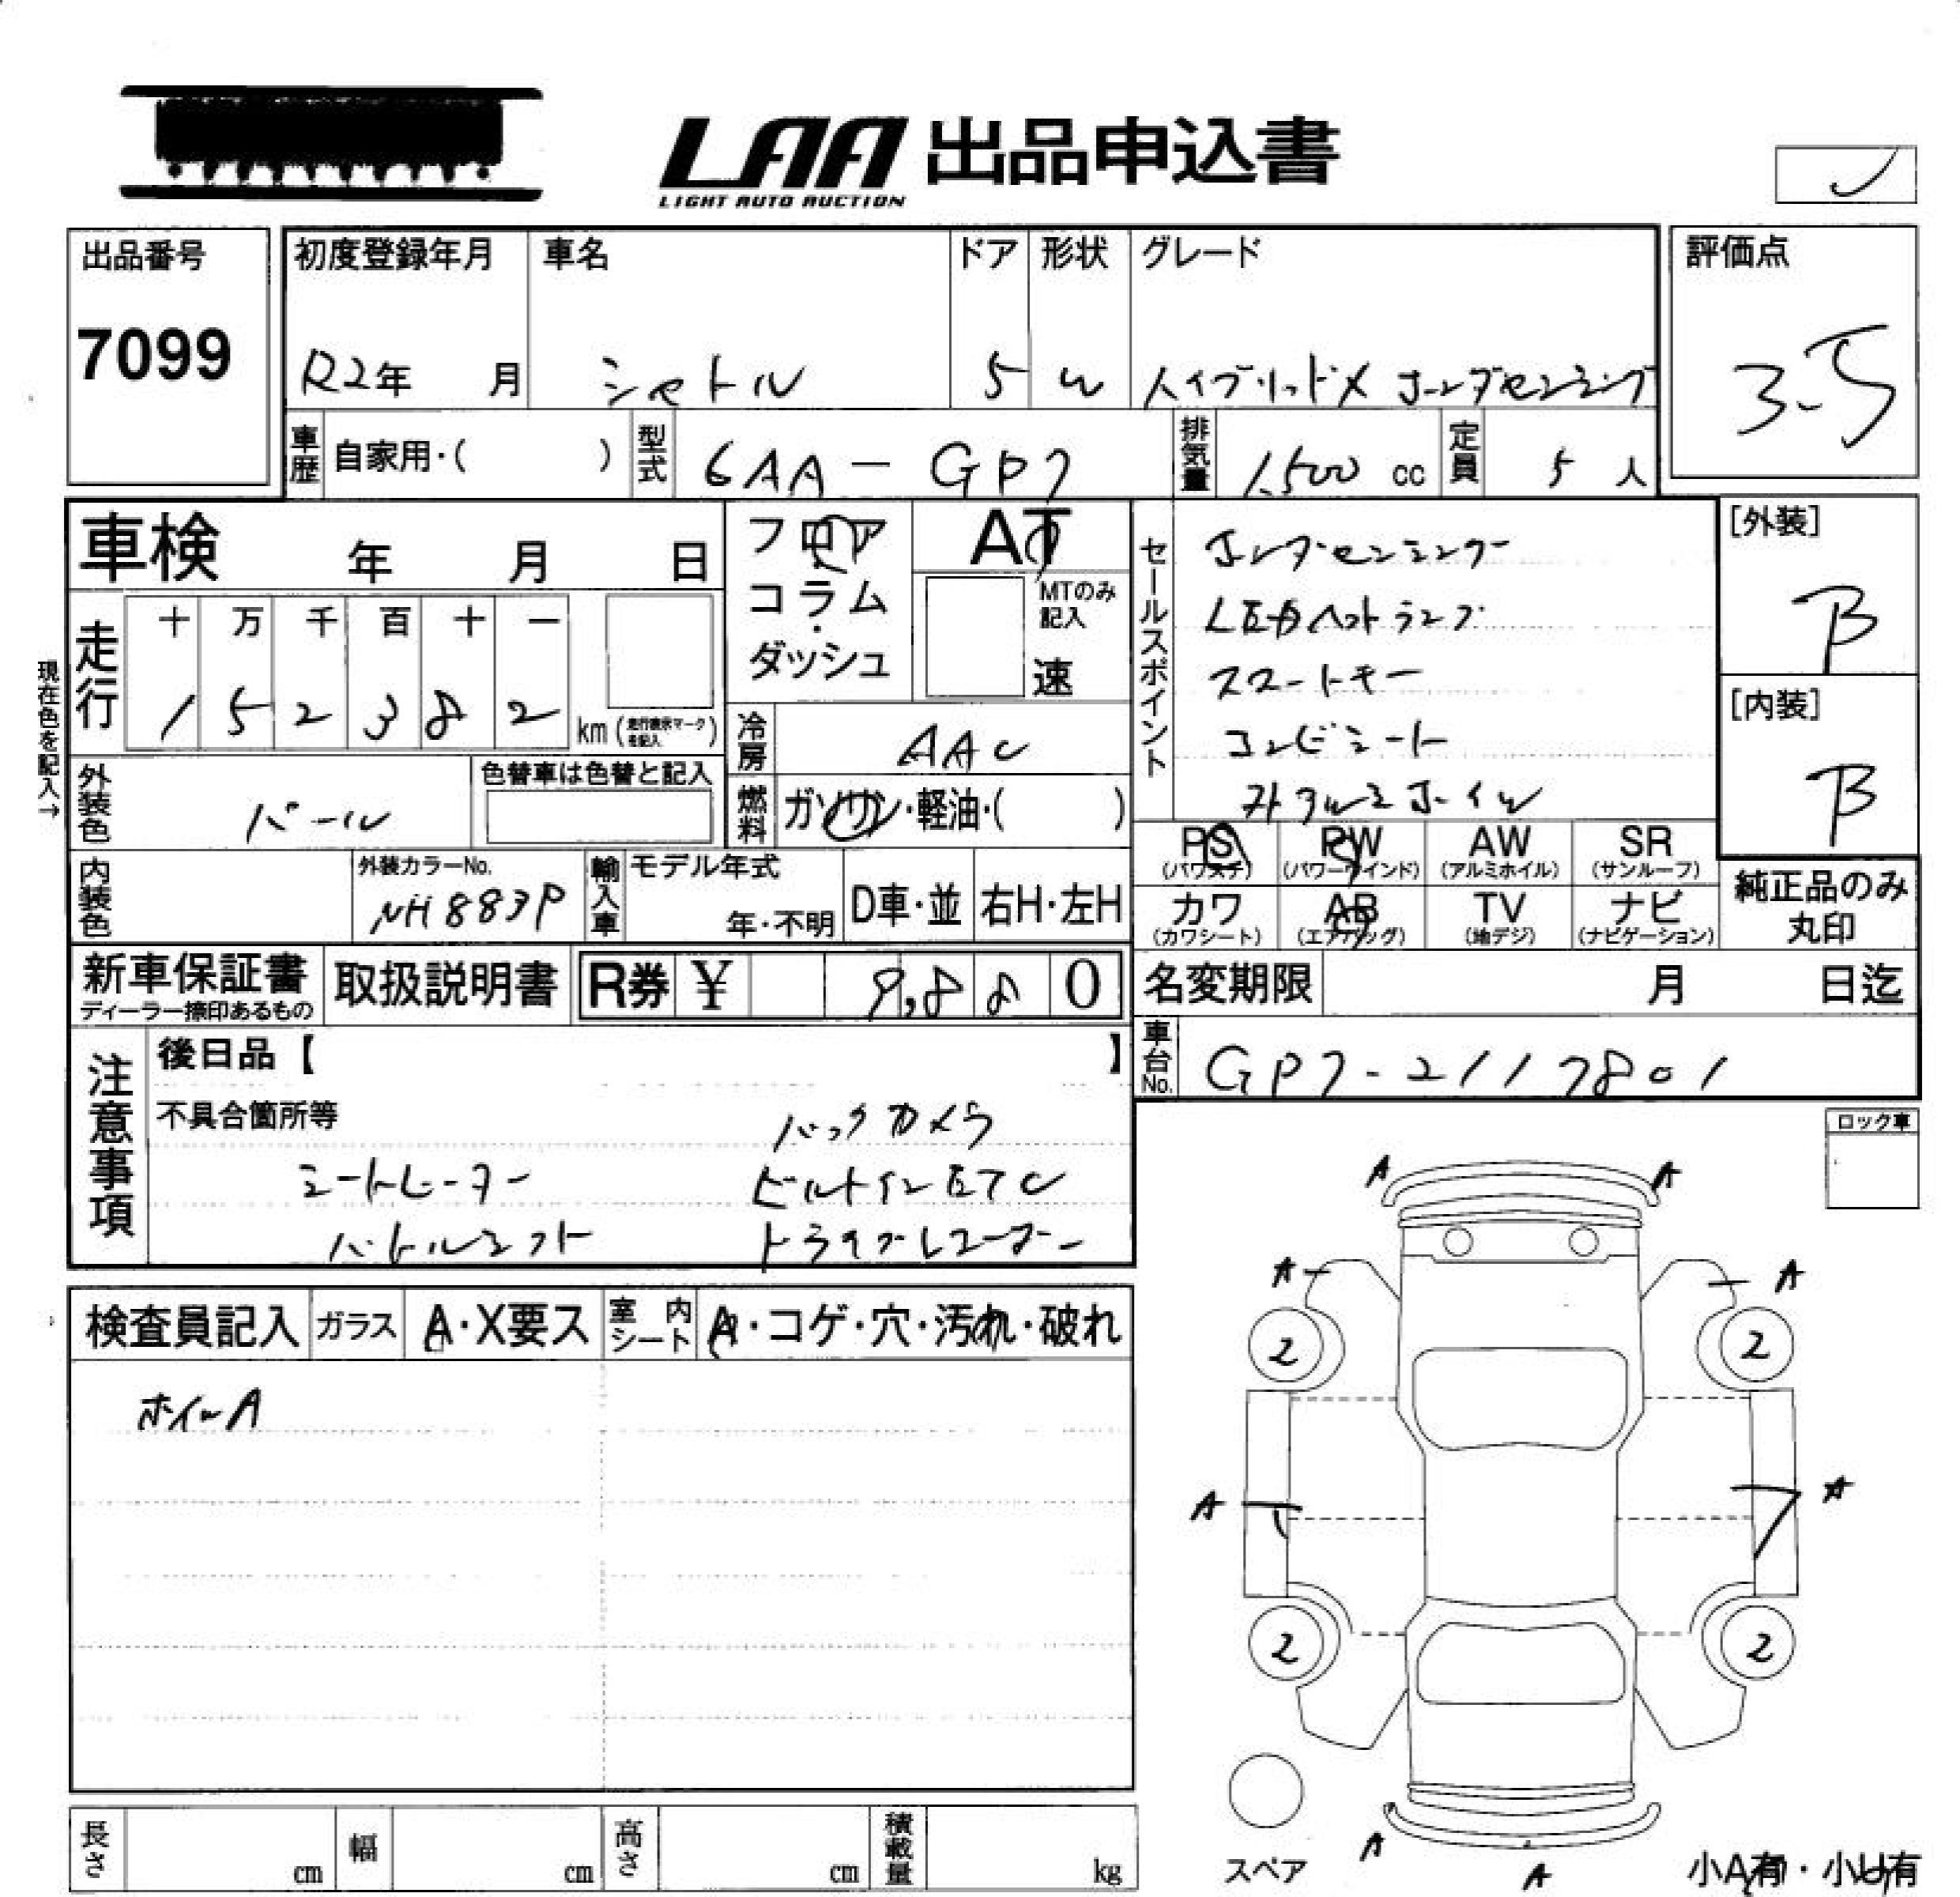 LAA 出品申込書
LIGHT AUTO AUCTION
出品番号
7099
初度登録年月 車名 ドア 形状 グレード
R2年 月 シャトル 5 W ハイブリッドX ホンダセンシング
評価点
3.5
車歴 自家用・( ) 型式 6AA-GP7 排気量 1,500 cc 定員 5 人
車検 年 月 日
フロア・コラム・ダッシュ
AT
MTのみ記入
速
現在色を記入→
走行 十 万 千 百 十 一
1 5 2 3 8 2 km (走行表示マークを記入)
冷房 AAC
燃料 ガソリン・軽油・( )
外装色 パール
色替車は色替と記入
内装色
外装カラーNo.
NH883P
輸入車 モデル年式
年・不明 D車・並 右H・左H
セールスポイント
ホンダセンシング
LEDヘットランプ
スマートキー
コンビシート
アルミホイル
[外装]
B
[内装]
B
PS (パワステ) PW (パワーウインド) AW (アルミホイル) SR (サンルーフ)
カワ (カワシート) AB (エアバッグ) TV (地デジ) ナビ (ナビゲーション)
純正品のみ
丸印
新車保証書
ディーラー捺印あるもの
取扱説明書 R券 ¥ 9,880
名変期限 月 日迄
車台No. GP7-2117801
注意事項
後日品【 】
不具合箇所等
バックカメラ
シートヒーター ビルトインETC
パドルシフト ドライブレコーダー
ロック車
検査員記入 ガラス A・X要ス 室内シート A・コゲ・穴・汚れ・破れ
ホイールA
A A
A A
2 2
A A
2 2
A
A
スペア
小A有・小U有
長さ cm 幅 cm 高さ cm 積載量 kg